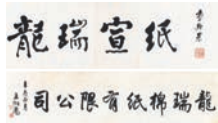 龍瑞宣纸
龍瑞棉纸有限公司